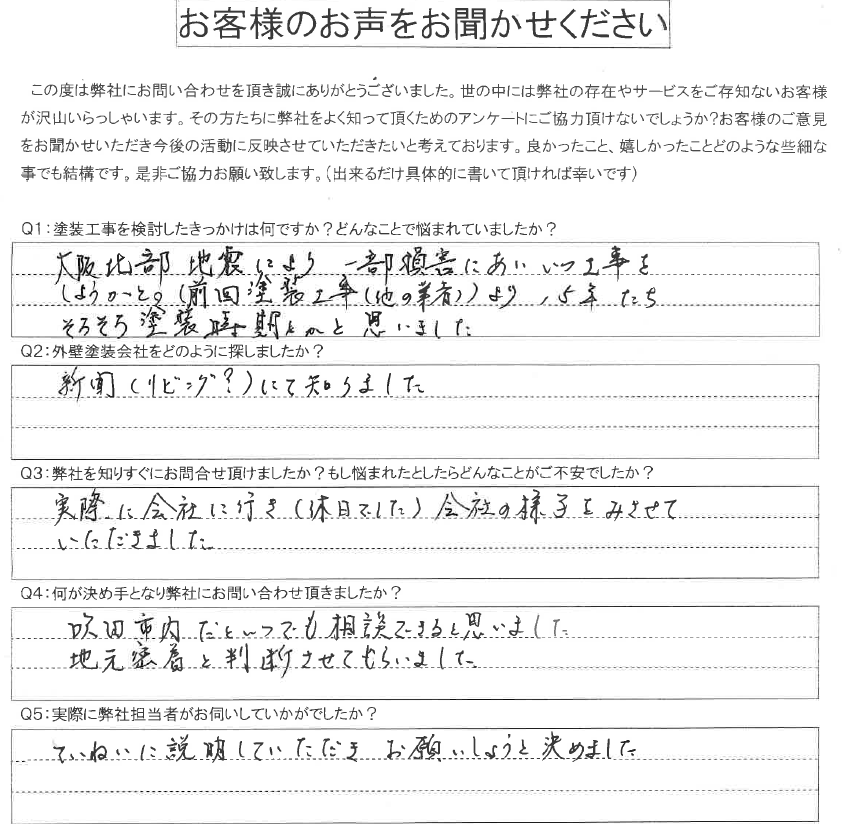 お客様のお声をお聞かせください
この度は弊社にお問い合わせを頂き誠にありがとうございました。世の中には弊社の存在やサービスをご存知ないお客様
が沢山いらっしゃいます。その方たちに弊社をよく知って頂くためのアンケートにご協力頂けないでしょうか?お客様のご意見
をお聞かせいただき今後の活動に反映させていただきたいと考えております。良かったこと、嬉しかったことどのような些細な
事でも結構です。是非ご協力お願い致します。(出来るだけ具体的に書いて頂ければ幸いです)
Q1:塗装工事を検討したきっかけは何ですか?どんなことで悩まれていましたか?
大阪北部 地震により 一部損害にあい いつ工事を
しようかと。(前回塗装工事(他の業者))より 15年 たち
そろそろ塗装時期とかと思いました
Q2:外壁塗装会社をどのように探しましたか?
新聞(リビング?)にて知りました
Q3:弊社を知りすぐにお問合せ頂けましたか?もし悩まれたとしたらどんなことがご不安でしたか?
実際に会社に行き(休日でした)会社の様子をみさせて
いただきました。
Q4:何が決め手となり弊社にお問い合わせ頂きましたか?
吹田市内だといつでも相談できると思いました
地元密着と判断させてもらいました
Q5:実際に弊社担当者がお伺いしていかがでしたか?
ていねいに説明していただき お願いしようと決めました